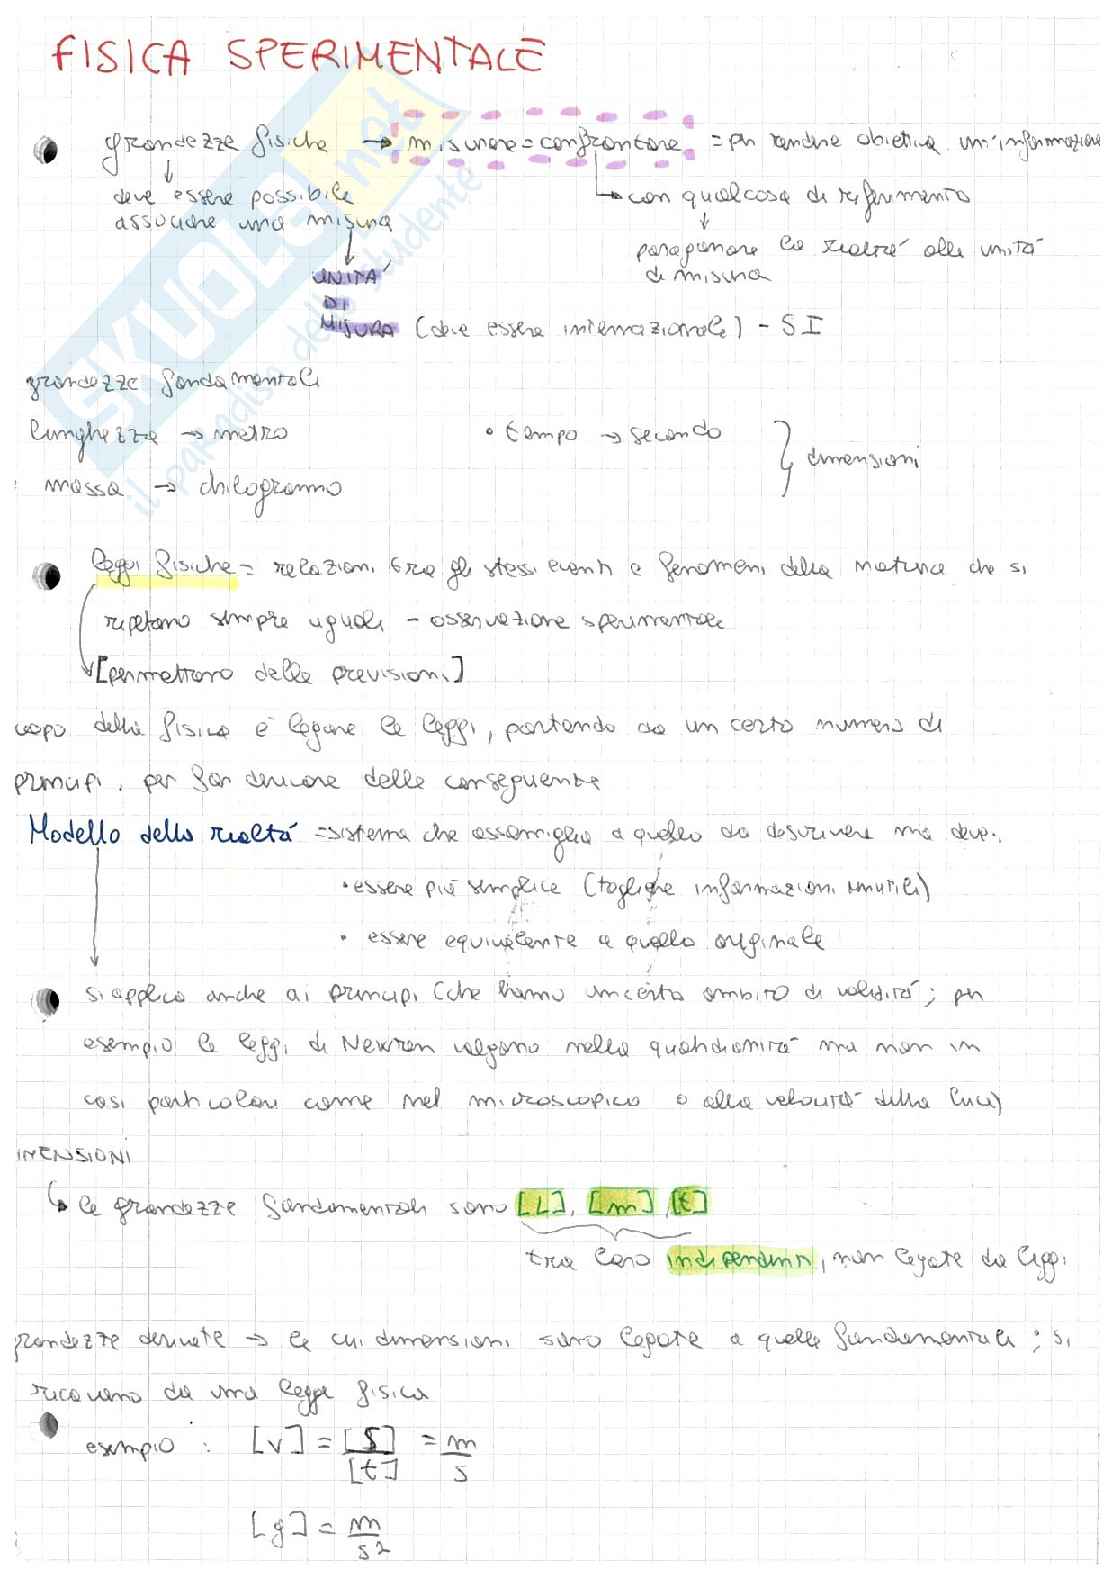 FISICA SPERIMENTALE
grandezze fisiche → misurare = confrontare = per rendere obiettiva un'informazione
deve essere possibile
associare una misura
→ con qualcosa di riferimento
paragonare la realtá alle unitá
di misura
UNITÁ
DI
MISURA (deve essere internazionale) - SI
grandezze fondamentali
lunghezza → metro • tempo → secondo } dimensioni
massa → chilogrammo
leggi fisiche = relazioni tra gli stessi eventi e fenomeni della natura che si
ripetono sempre uguali - osservazione sperimentale
[permettono delle previsioni]
copo della fisica é legare le leggi, partendo da un certo numero di
principi, per far derivare delle conseguenze
Modello della realtá = sistema che assomiglia a quello da descrivere ma deve:
• essere piú semplice (togliere informazioni inutili)
• essere equivalente a quello originale
si applica anche ai principi (che hanno un certo ambito di validitá; per
esempio le leggi di Newton valgono nella quotidianitá ma non in
casi particolari come nel microscopico o alla velocitá della luce)
IMENSIONI
↳ le grandezze fondamentali sono [L], [m], [t]
tra loro indipendenti, non legate da leggi
grandezze derivate → le cui dimensioni sono legate a quelle fondamentali; si
ricavano da una legge fisica
esempio: [v] = [S]/[t] = m/s
[g] = m/s²
SKUOLA.net
il paradiso dello studente